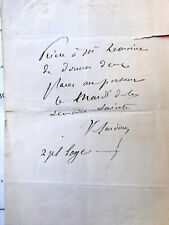 Prière à
de donner deux
places au porteur
le Mardi de la
semaine sainte
V. Sardou
2 pl loge